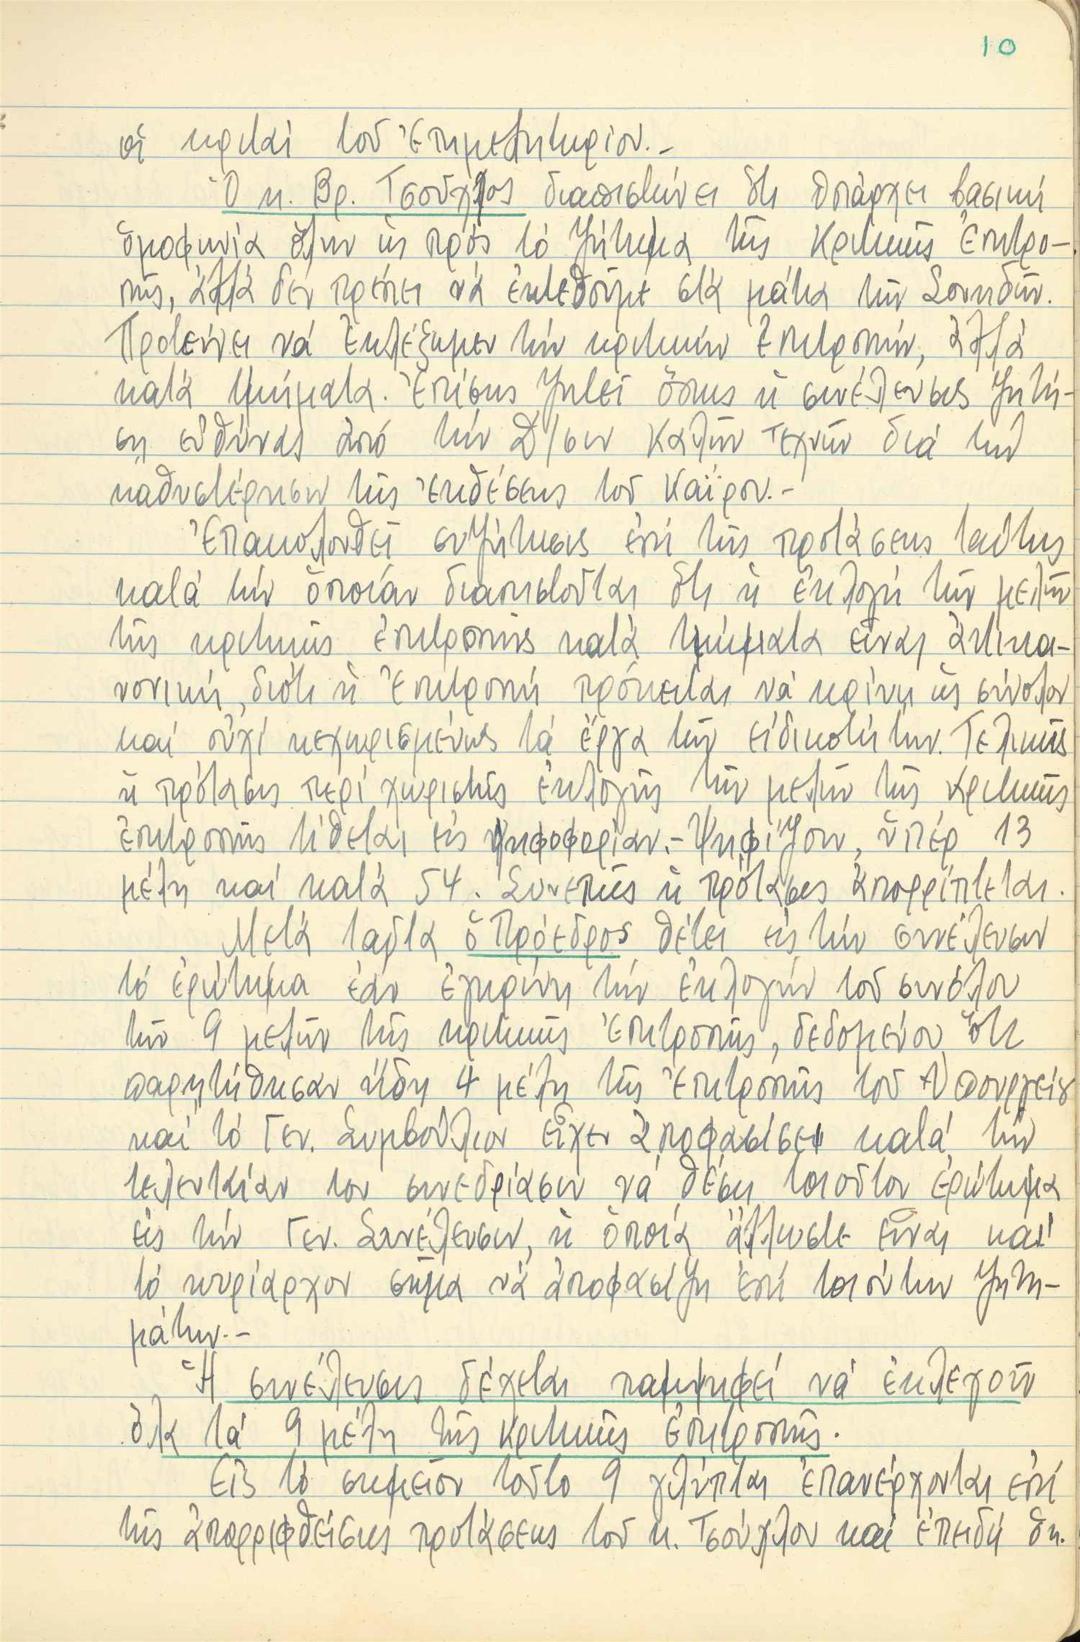 10
οἱ κριταί τοῦ Ἐπιμελητηρίου.-
Ὁ κ. Βρ. Τσοῦχλος διαπιστώνει ὅτι ὑπάρχει βασική
ὁμοφωνία ὅλων ὡς πρός τό ζήτημα τῆς Κριτικῆς Ἐπιτρο-
πῆς, ἀλλά δέν πρέπει νά ἐκτεθοῦμε στά μάτια τῶν Σουηδῶν.
Προτείνει νά ἐκλέξωμεν τήν κριτικήν Ἐπιτροπήν, ἀλλά
κατά τμήματα. Ἐπίσης ζητεῖ ὅπως ἡ συνέλευσις ζητή-
ση εὐθύνας ἀπό τήν Δ/σιν Καλῶν Τεχνῶν διά τήν
καθυστέρησιν τῆς Ἐκθέσεως τοῦ Καΐρου.-
Ἐπακολουθεῖ συζήτησις ἐπί τῆς προτάσεως ταύτης
κατά τήν ὁποίαν διαπιστοῦται ὅτι ἡ ἐκλογή τῶν μελῶν
τῆς κριτικῆς ἐπιτροπῆς κατά τμήματα εἶναι ἀντικα-
νονική, διότι ἡ Ἐπιτροπή πρόκειται νά κρίνη ὡς σύνολον
καί οὐχί κεχωρισμένως τά ἔργα τῶν εἰδικοτήτων. Τελικῶς
ἡ πρότασις περί χωριστῆς ἐκλογῆς τῶν μελῶν τῆς κριτικῆς
ἐπιτροπῆς τίθεται εἰς ψηφοφορίαν.- Ψηφίζουν, ὑπέρ 13
μέλη καί κατά 54. Συνεπῶς ἡ πρότασις ἀπορρίπτεται.
Μετά ταῦτα ὁ Πρόεδρος θέτει εἰς τήν συνέλευσιν
τό ἐρώτημα ἐάν ἐγκρίνη τήν ἐκλογήν τοῦ συνόλου
τῶν 9 μελῶν τῆς κριτικῆς Ἐπιτροπῆς, δεδομένου ὅτι
παρητήθησαν ἤδη 4 μέλη τῆς Ἐπιτροπῆς τοῦ Ὑπουργείου
καί τό Γεν. Συμβούλιον εἶχεν ἀποφασίσει κατά τήν
τελευταίαν του συνεδρίασιν νά θέση τοιοῦτον ἐρώτημα
εἰς τήν Γεν. Συνέλευσιν, ἡ ὁποία ἄλλωστε εἶναι καί
τό κυρίαρχον σῶμα νά ἀποφασίζη ἐπί τοιούτων ζητη-
μάτων.-
Ἡ συνέλευσις δέχεται παμψηφεί νά ἐκλεγοῦν
ὅλα τά 9 μέλη τῆς κριτικῆς ἐπιτροπῆς.
Εἰς τό σημεῖον τοῦτο 9 γλύπται ἐπανέρχονται ἐπί
τῆς ἀπορριφθείσης προτάσεως τοῦ κ. Τσούχλου καί ἐπειδή θη.